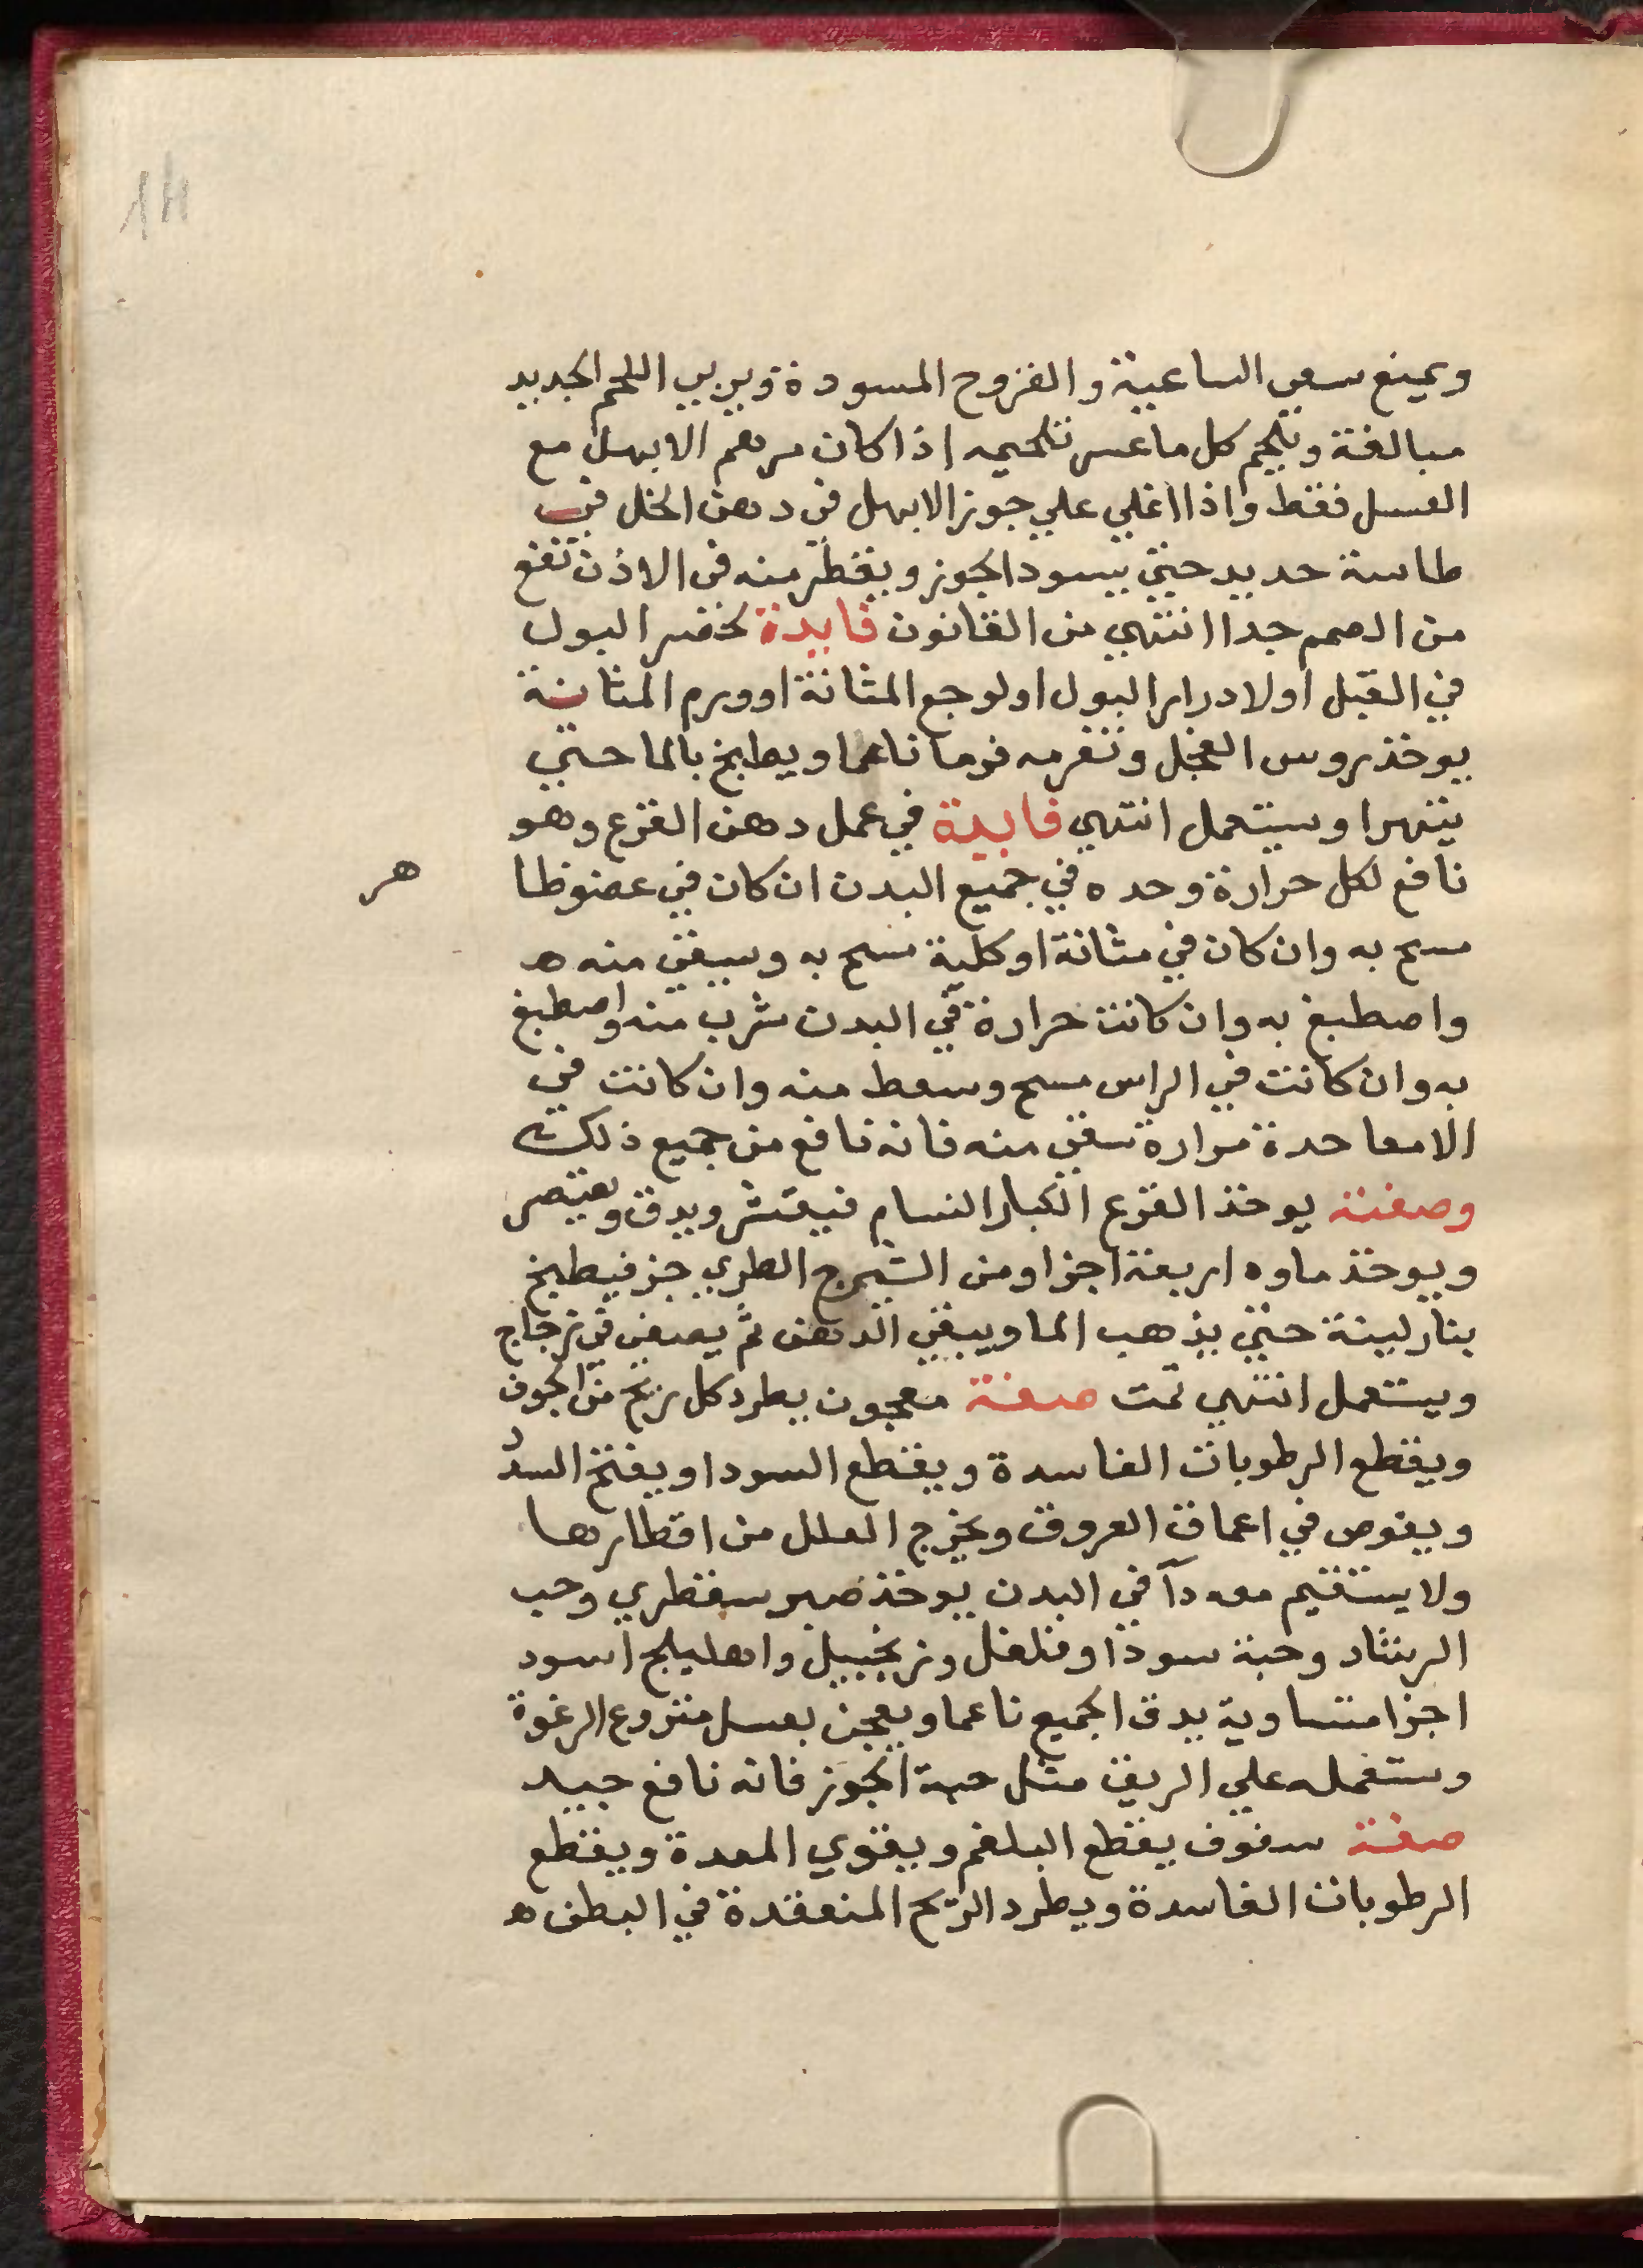 14
ويمنع سعي الساعية والقروح المسودة ويربي اللحم الجديد
مبالغة ويلحم كل ما عسر تلحيمه اذا كان مرهم الابهل مع
العسل فقط واذا اغلي علي جوز الابهل في دهن الخل في
طاسة حديد حتي يسود الجوز ويقطر منه في الاذن نفع
من الصمم جدا انتهي من القانون فايدة لحصر البول
في القبل اولادرار البول اولوجع المثانة اوورم المثانة
يوخذ روس الفجل وتفرمه فرما ناعما ويطبخ بالما حتي
يتهرا ويستعمل انتهي فايدة في عمل دهن القرع وهو
نافع لكل حرارة وحده في جميع البدن ان كان في عضو ظا
هر
مسح به وان كان في مثانة اوكلية مسح به وسقي منه ه
واصطبغ به وان كانت حرارة في البدن شرب منه واصطبغ
به وان كانت في الراس مسح وسعط منه وان كانت في
الامعا حدة مرارة سقي منه فانه نافع من جميع ذلك
وصفته يوخذ القرع الكبار النسام فيقشر ويدق ويعتصر
ويوخذ ماوه اربعة اجزا ومن الشيرج الطري جز فيطبخ
بنار لينة حتي يذهب الما ويبقي الدهن ثم يصفي في زجاج
ويستعمل انتهي تمت صفة معجون يطرد كل ريح من الجوف
ويقطع الرطوبات الفاسدة ويقطع السودا ويفتح السدد
ويغوص في اعماق العروق ويخرج العلل من اقطارها
ولا يستقيم معه دآ في البدن يوخذ صبر سقطري وحب
الرشاد وحبة سودا وفلفل وزنجبيل واهليلج اسود
اجزا متساوية يدق الجميع ناعما ويعجن بعسل منزوع الرغوة
وستعمله علي الريق مثل حبة الجوز فانه نافع جيد
صفة سفوف يقطع البلغم ويقوي المعدة ويقطع
الرطوبات الفاسدة ويطرد الريح المنعقدة في البطن ه